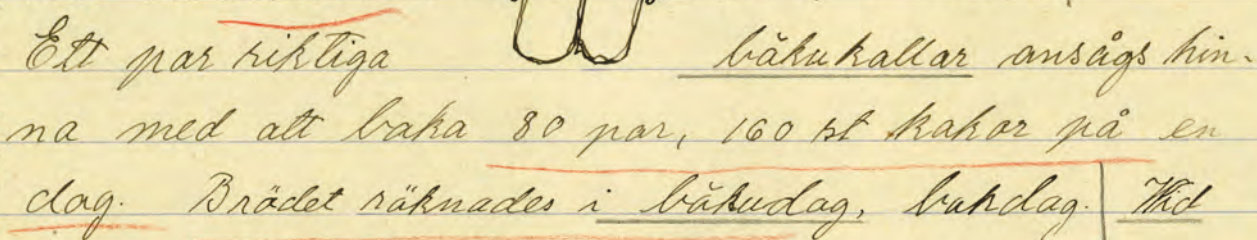 Ett par riktiga båkukallar ansågs hin-
na med att baka 80 par, 160 st kakor på en
dag. Brödet räknades i båkudag, bakdag. Wid